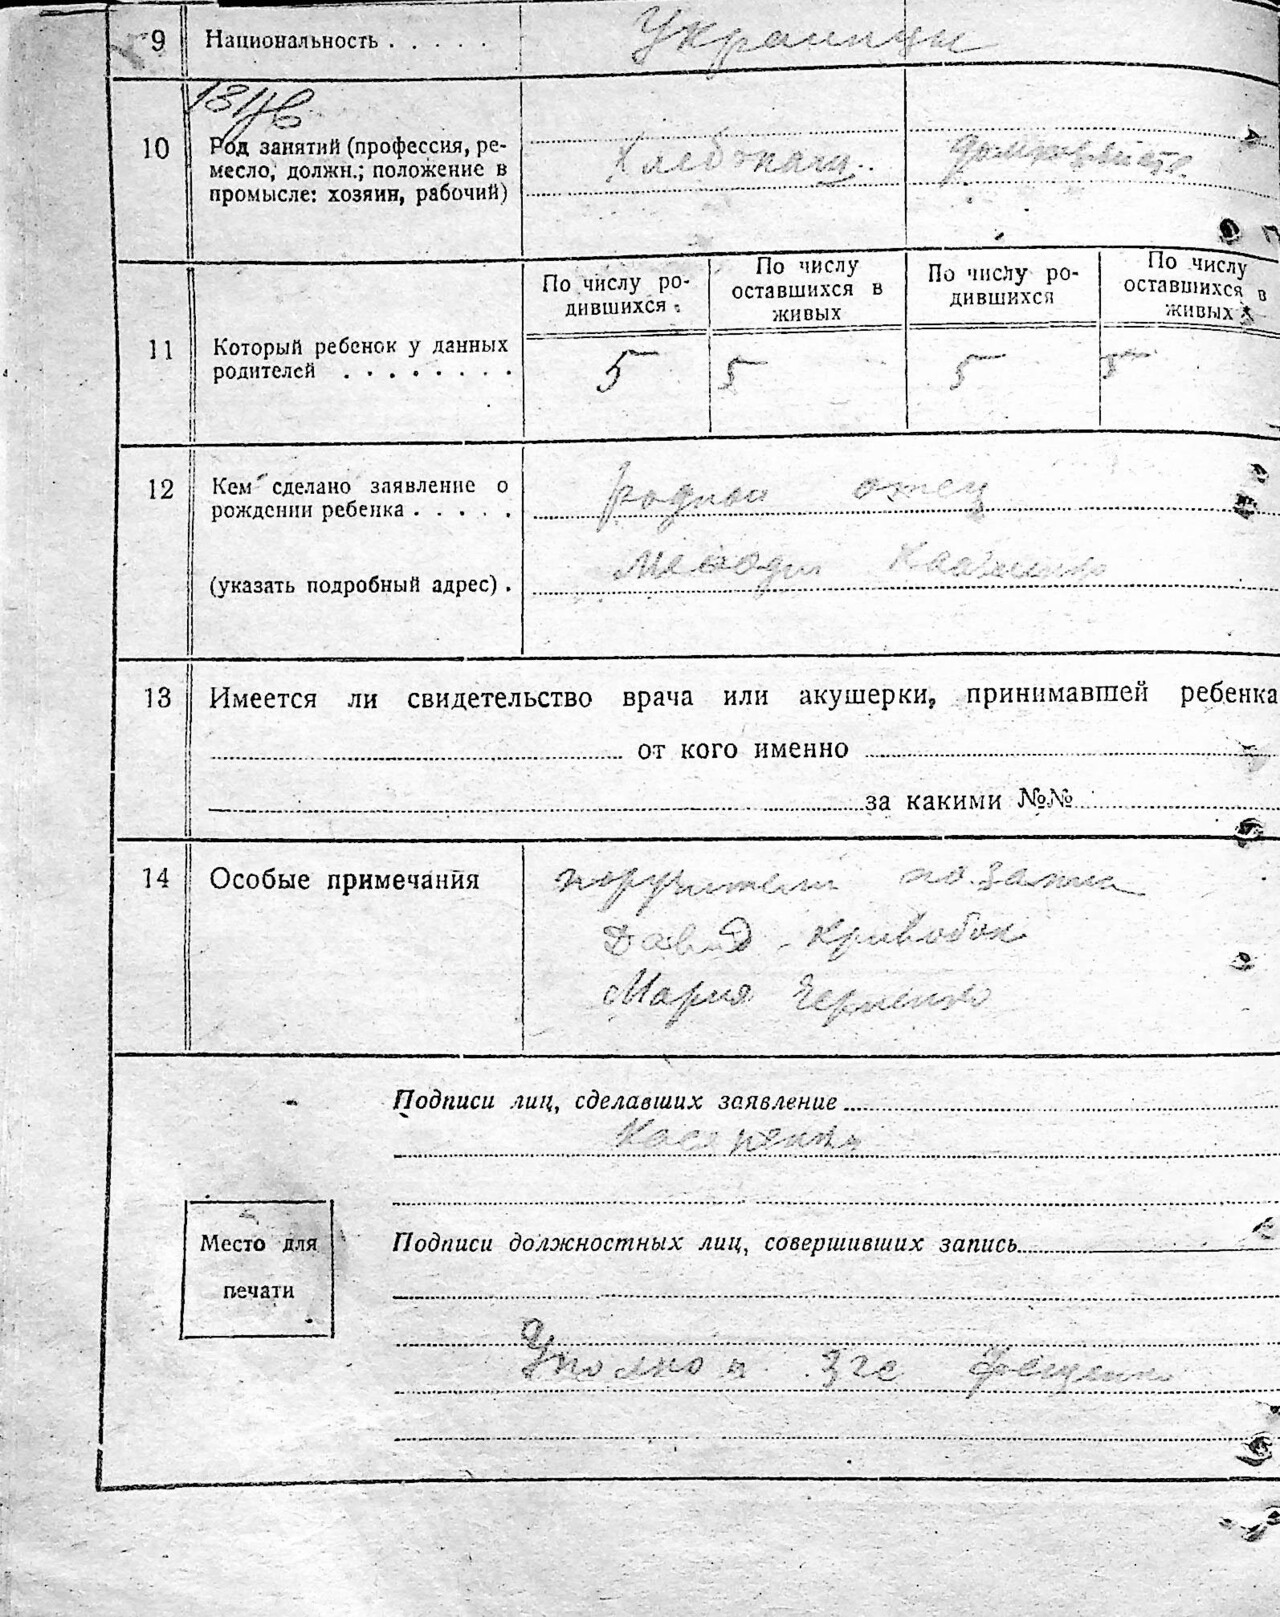 9 Национальность . . . . . Украинцы
10 Род занятий (профессия, ре-
месло, должн.; положение в
промысле: хозяин, рабочий)
Хлебопаш. домохозяйств.
По числу ро-
дившихся
По числу
оставшихся в
живых
По числу ро-
дившихся
По числу
оставшихся в
живых
11 Который ребенок у данных
родителей . . . . . . . .
5 5 5 5
12 Кем сделано заявление о
рождении ребенка . . . . .
родной отец
(указать подробный адрес) .
13 Имеется ли свидетельство врача или акушерки, принимавшей ребенка
от кого именно
за какими №№
14 Особые примечания
поручители по запис
Давид Кривобок
Мария
Подписи лиц, сделавших заявление
Место для
печати
Подписи должностных лиц, совершивших запись
Уполном. Загс Фещенко